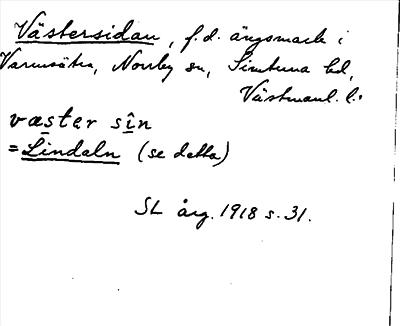 Västersidan, f.d. ängsmark i
Varmsätra, Norrby sn, Simtuna hd,
Västmanl. l:
væster sîn
=Lindaln (se detta)
SL årg. 1918 s. 31.